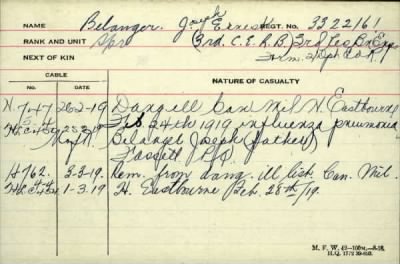 NAME Belanger. Joseph Ernest REGT. NO. 3322161
RANK AND UNIT Spr (3rd. C. E. R. B.) 3rd Res Bn
NEXT OF KIN
CABLE
NO. DATE NATURE OF CASUALTY
H747 26-2-19 Dang ill Can Mil H. Eastbourne
Feb 24th 1919 influenza pneumonia
Belanger Joseph (father)
Fassett P.Q.
H762. 3-3-19. Rem. from dang. ill list. Can. Mil.
1-3.19 H. Eastbourne Feb. 28th/19.
M. F. W. 42
H.Q. 1772